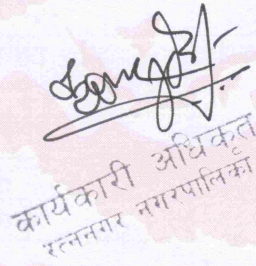 कार्यकारी अधिकृत
रत्ननगर नगरपालिका